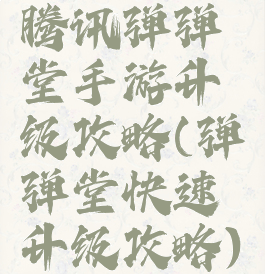 腾讯弹弹
堂手游升
级攻略(弹
弹堂快速
升级攻略)